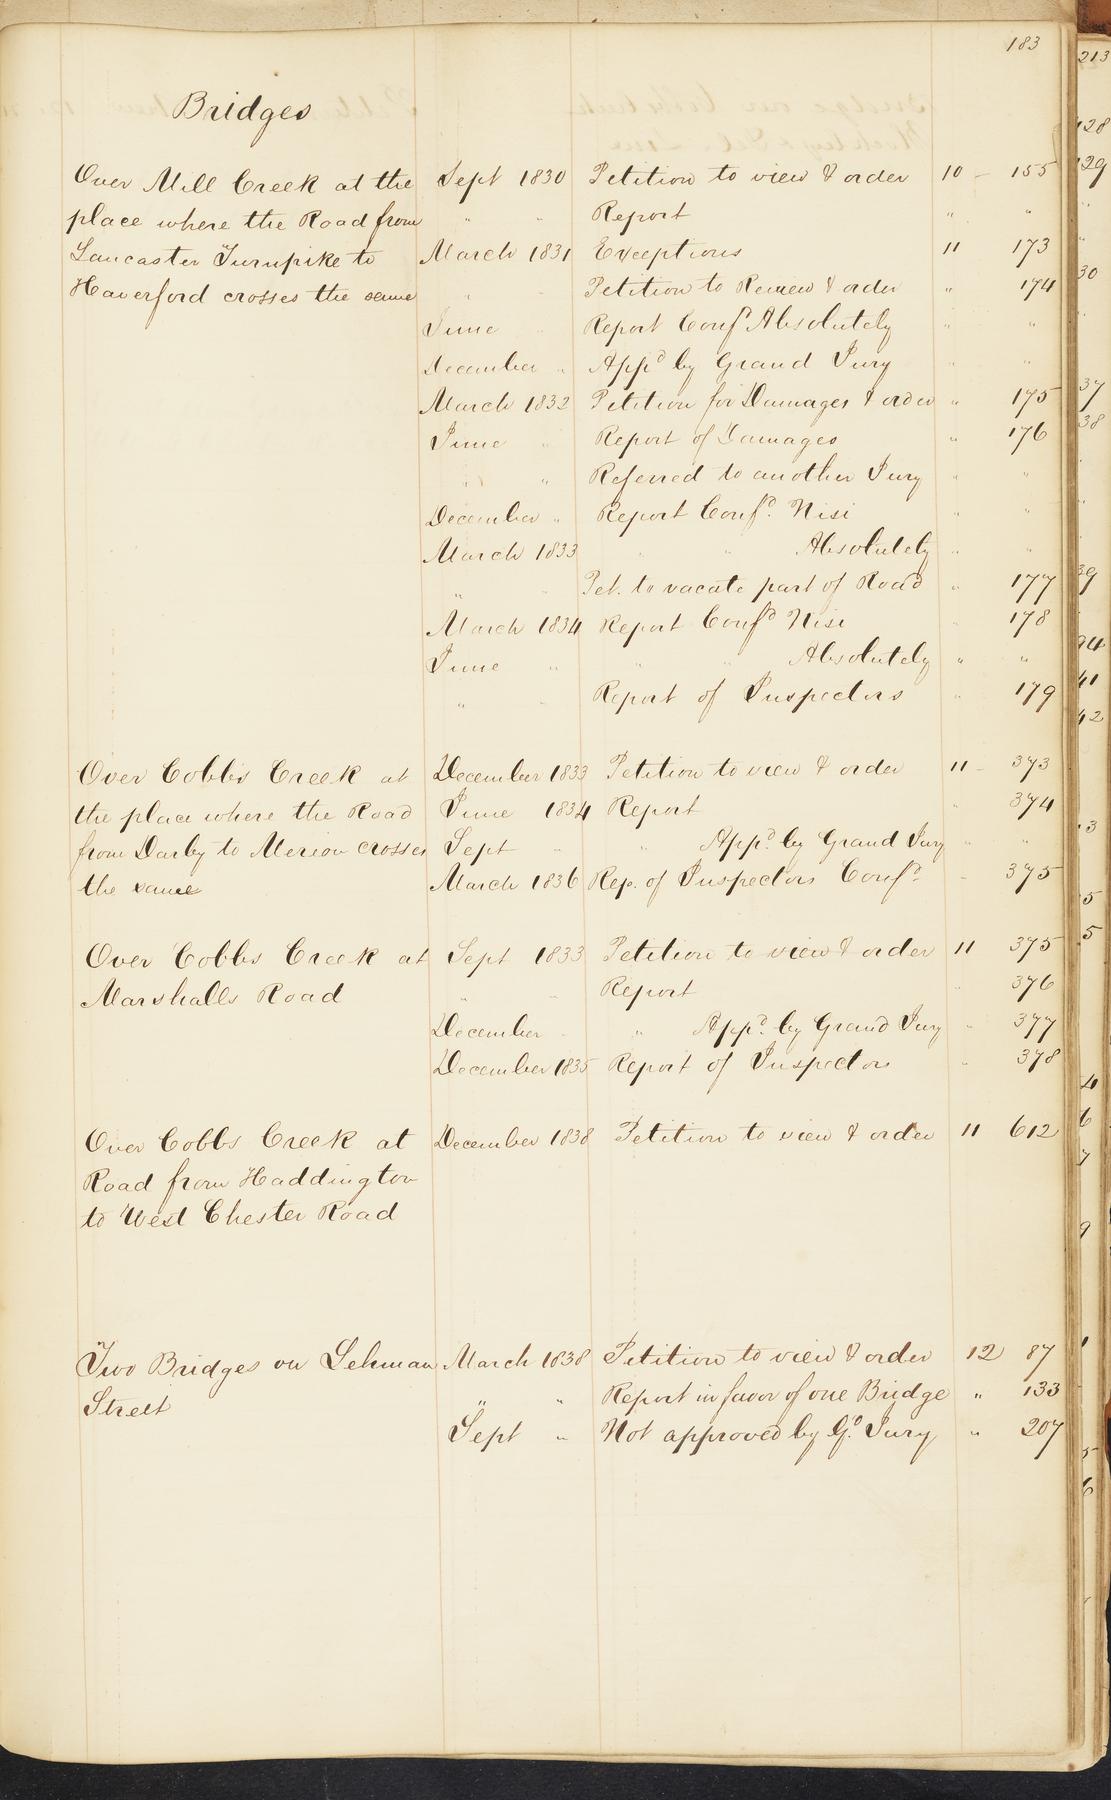 183
Bridges
Over Mill Creek at the Sept 1830 Petition to view & order 10 - 155
place where the Road from " " Report " "
Lancaster Turnpike to March 1831 Exceptions 11 173
Haverford crosses the same " " Petition to Review & order " 174
June " Report Confd Absolutely " "
December " Appd by Grand Jury " "
March 1832 Petition for Damages & order " 175
June " Report of Damages " 176
" " Referred to another Jury " "
December " Report Confd. Nisi " "
March 1833 " " Absolutely " "
" " Pet. to vacate part of Road " 177
March 1834 Report Confd Nisi " 178
June " " " Absolutely " "
" " Report of Inspectors " 179
Over Cobbs Creek at December 1833 Petition to view & order 11 - 373
the place where the Road June 1834 Report " 374
from Darby to Merion crosses Sept " " Appd. by Grand Jury " "
the same March 1836 Rep. of Inspectors Confd. " 375
Over Cobbs Creek at Sept 1833 Petition to view & order 11 375
Marshalls Road " " Report " 376
December " " Appd. by Grand Jury " 377
December 1835 Report of Inspectors " 378
Over Cobbs Creek at December 1838 Petition to view & order 11 612
Road from Haddington
to West Chester Road
Two Bridges on Lehman March 1838 Petition to view & order 12 87
Street " " Report in favor of one Bridge " 133
Sept " Not approved by Gd. Jury " 207